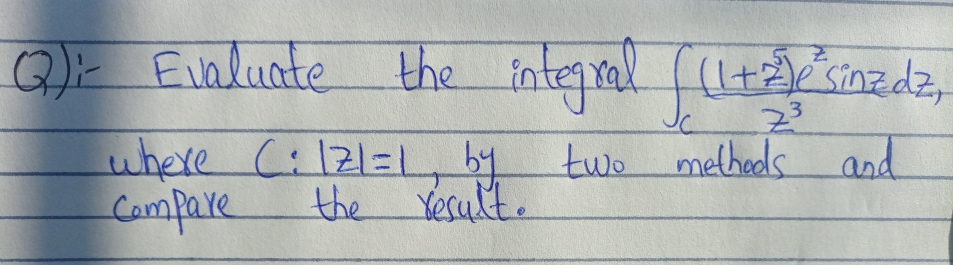 Q):- Evaluate the integral ∫_C (1+z⁵)e^z sinz dz / z³,
where C: |z|=1, by two methods and
Compare the result.